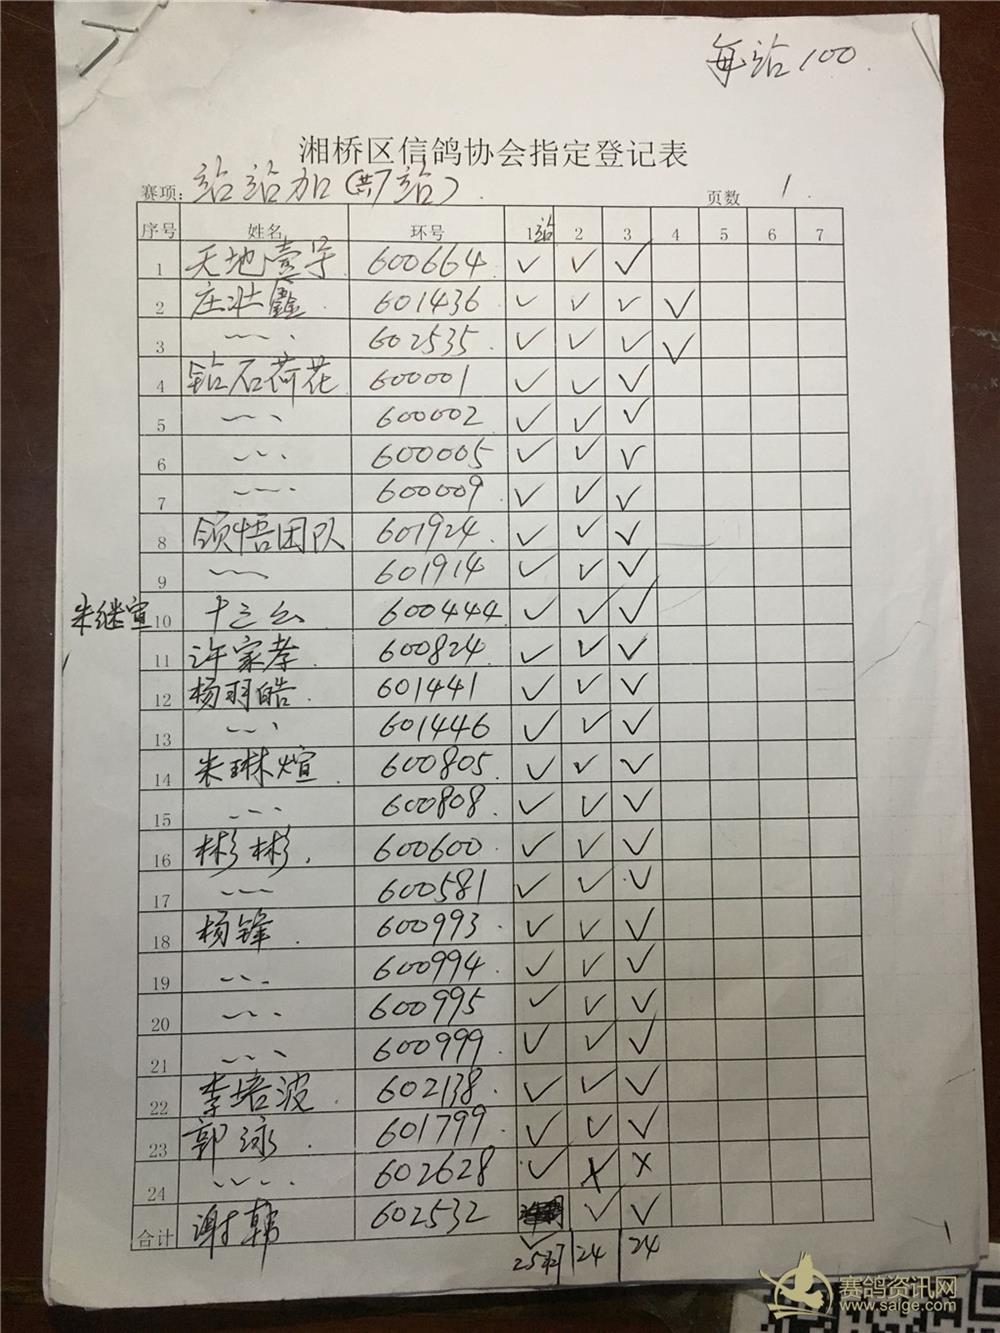 每站100.
湘桥区信鸽协会指定登记表
赛项: 站站加(共7站). 页数 1.
序号 姓名 环号 1站 2 3 4 5 6 7
1 天地壹号 600664. ✓ ✓ ✓
2 庄壮鑫 601436 ✓ ✓ ✓ ✓
3 〃 602535. ✓ ✓ ✓ ✓
4 钻石荷花 600001 ✓ ✓ ✓
5 〃 600002 ✓ ✓ ✓
6 〃 600005 ✓ ✓ ✓
7 〃 600009. ✓ ✓ ✓
8 领悟团队 601924. ✓ ✓ ✓
9 〃 601914 ✓ ✓ ✓
朱继宣 10 十三么 600444. ✓ ✓ ✓
11 许家孝. 600824. ✓ ✓ ✓
12 杨羽皓. 601441 ✓ ✓ ✓
13 〃 601446 ✓ ✓ ✓
14 朱琳煊. 600805. ✓ ✓ ✓
15 〃 600808. ✓ ✓ ✓
16 彬彬. 600600. ✓ ✓ ✓
17 〃 600581 ✓ ✓ ✓
18 杨锋. 600993. ✓ ✓ ✓
19 〃 600994. ✓ ✓ ✓
20 〃 600995. ✓ ✓ ✓
21 〃 600999. ✓ ✓ ✓
22 李培波. 602138. ✓ ✓ ✓
23 郭泳. 601799. ✓ ✓ ✓
24 〃 602628 ✓ ✗ ✗
合计 谢韩 602532 ✓ ✓ ✓
25羽 24 24
赛鸽资讯网
www.saige.com